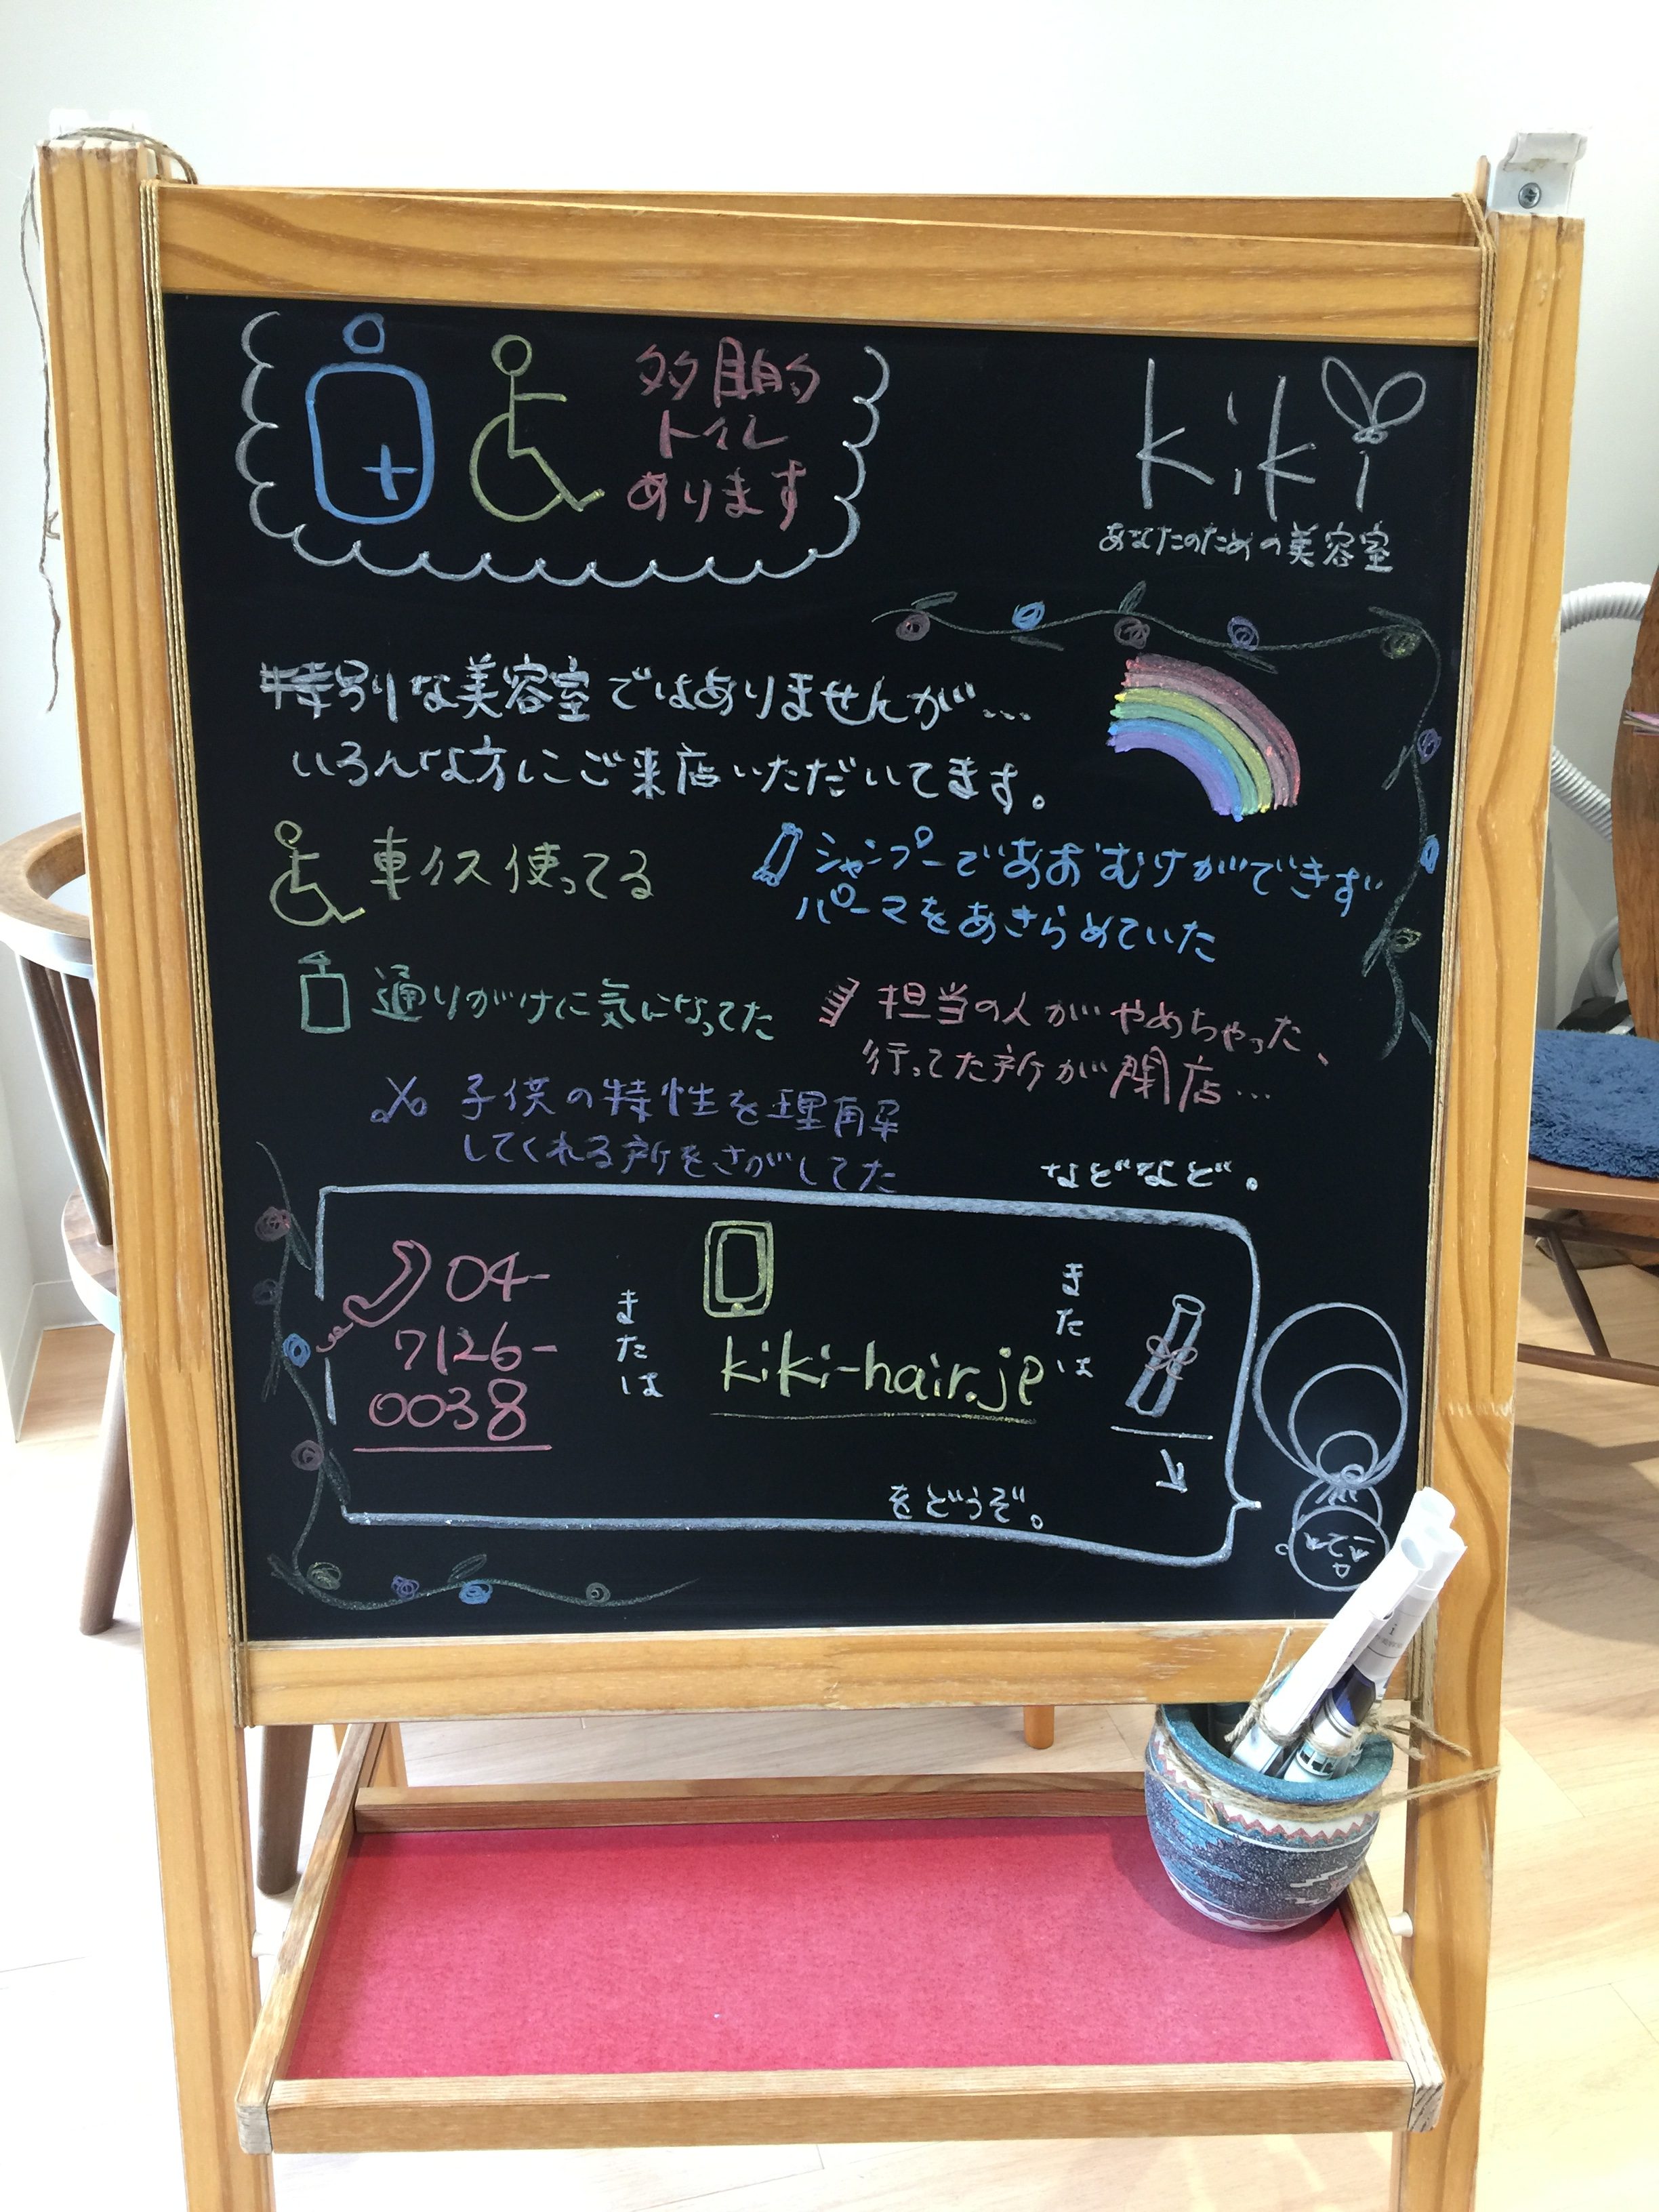 多目的
トイレ
あります
kiki
あなたのための美容室
特別な美容室ではありませんが…
いろんな方にご来店いただいてます。
車イス使ってる
シャンプーであおむけができず
パーマをあきらめていた
通りがけに気になってた
担当の人がやめちゃった、
行ってた所が閉店…
子供の特性を理解
してくれる所をさがしてた
などなど。
04-
7126-
0038
または
kiki-hair.jp
または
をどうぞ。